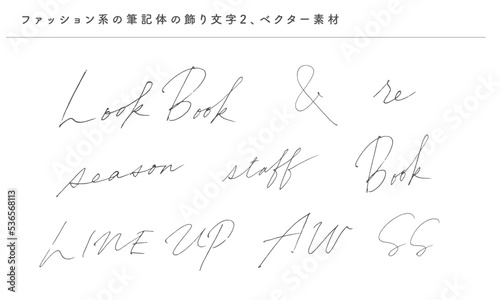 ファッション系の筆記体の飾り文字2、ベクター素材
Look Book & re
season staff Book
LINE UP AW SS
Adobe Stock | #536568113
Adobe Stock